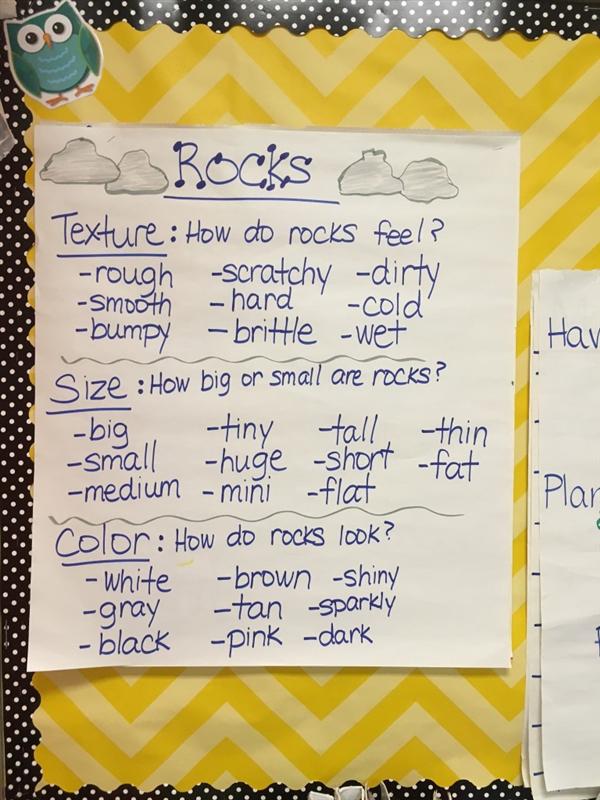 Rocks
Texture: How do rocks feel?
-rough -scratchy -dirty
-smooth -hard -cold
-bumpy -brittle -wet
Size: How big or small are rocks?
-big -tiny -tall -thin
-small -huge -short -fat
-medium -mini -flat
Color: How do rocks look?
-white -brown -shiny
-gray -tan -sparkly
-black -pink -dark
Hav
Plan